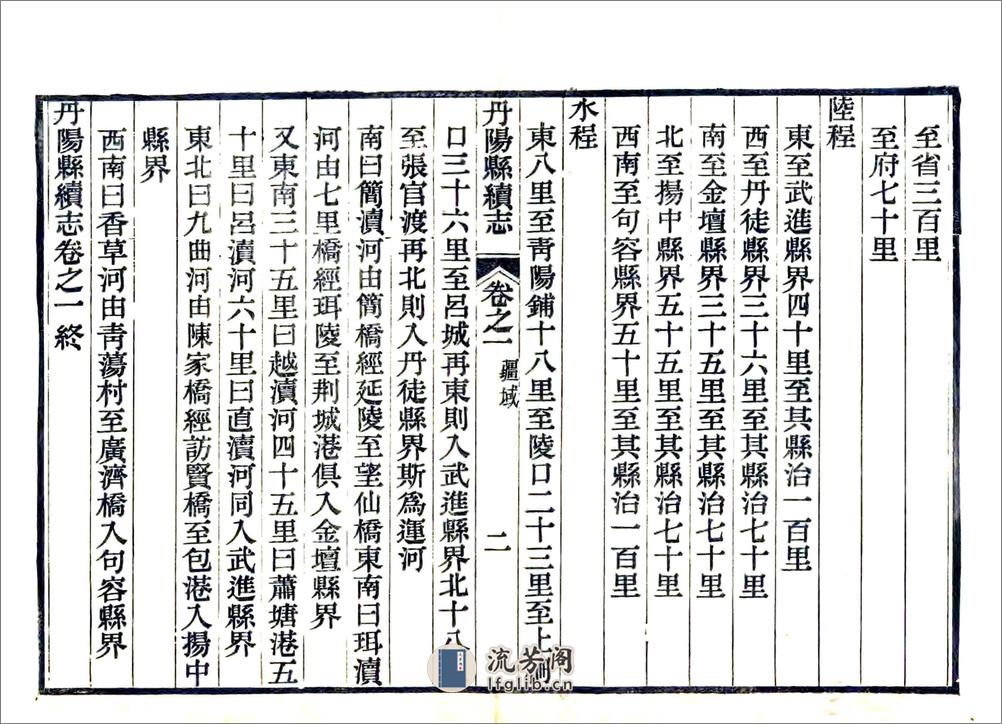 至省三百里
至府七十里
陸程
東至武進縣界四十里至其縣治一百里
西至丹徒縣界三十六里至其縣治七十里
南至金壇縣界三十五里至其縣治七十里
北至揚中縣界五十五里至其縣治七十里
西南至句容縣界五十里至其縣治一百里
水程
東八里至靑陽鋪十八里至陵口二十三里至上河
丹陽縣續志
卷之一
疆域
二
口三十六里至呂城再東則入武進縣界北十八
至張官渡再北則入丹徒縣界斯爲運河
南曰簡瀆河由簡橋經延陵至望仙橋東南曰珥瀆
河由七里橋經珥陵至荆城港俱入金壇縣界
又東南三十五里曰越瀆河四十五里曰蕭塘港五
十里曰呂瀆河六十里曰直瀆河同入武進縣界
東北曰九曲河由陳家橋經訪賢橋至包港入揚中
縣界
西南曰香草河由靑蕩村至廣濟橋入句容縣界
丹陽縣續志卷之一終
流芳阁
lfglib.cn